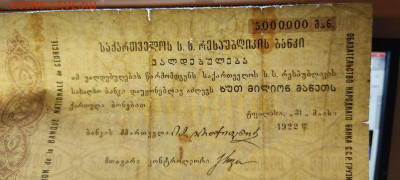 5.000.000 მან.
საქართველოს ს. ს. რესპუბლიკის ბანკი
ვალდებულება
ამ ვალდებულების წარმომდგენს საქართველოს ს. ს. რესპუბლიკის
სახალხო ბანკი დაუყოვნებლივ აძლევს ხუთ მილიონ მანეთს
ქართულ ბონებით
ტფილისი, „31“ მარტი 1922 წ.
ბანკის მმართველი
მთავარი კონტროლიორი
DE LA BANQUE NATIONALE DE GÉORGIE.
ОБЯЗАТЕЛЬСТВО НАРОДНАГО БАНКА С.С.Р. ГРУЗИ